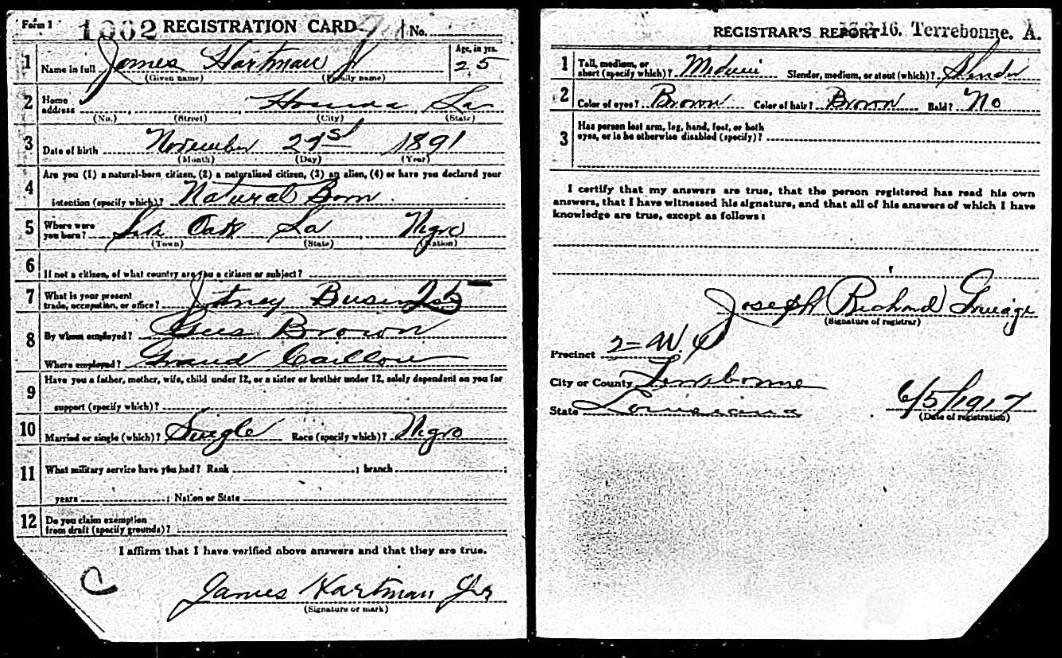 Form 1 1002 REGISTRATION CARD No.
1 Name in full James Hartman Jr Age, in yrs. 25
(Given name) (Family name)
2 Home address Houma La
(No.) (Street) (City) (State)
3 Date of birth November 21st 1891
(Month) (Day) (Year)
4 Are you (1) a natural-born citizen, (2) a naturalized citizen, (3) an alien, (4) or have you declared your
intention (specify which)? Natural Born
5 Where were you born? Oak La Negro
(Town) (State) (Nation)
6 If not a citizen, of what country are you a citizen or subject?
7 What is your present trade, occupation, or office? Jitney Business 25
8 By whom employed? Gus Brown
Where employed? Grand Caillou
9 Have you a father, mother, wife, child under 12, or a sister or brother under 12, solely dependent on you for
support (specify which)?
10 Married or single (which)? Single Race (specify which)? Negro
11 What military service have you had? Rank ; branch ;
years ; Nation or State
12 Do you claim exemption from draft (specify grounds)?
I affirm that I have verified above answers and that they are true.
C
James Hartman Jr
(Signature or mark)
REGISTRAR'S REPORT 16. Terrebonne. A.
1 Tall, medium, or short (specify which)? Medium Slender, medium, or stout (which)? Slender
2 Color of eyes? Brown Color of hair? Brown Bald? No
3 Has person lost arm, leg, hand, foot, or both eyes, or is he otherwise disabled (specify)?
I certify that my answers are true, that the person registered has read his own
answers, that I have witnessed his signature, and that all of his answers of which I have
knowledge are true, except as follows:
Joseph Richard
(Signature of registrar)
Precinct 2
City or County Terrebonne
State Louisiana 6/5/1917
(Date of registration)